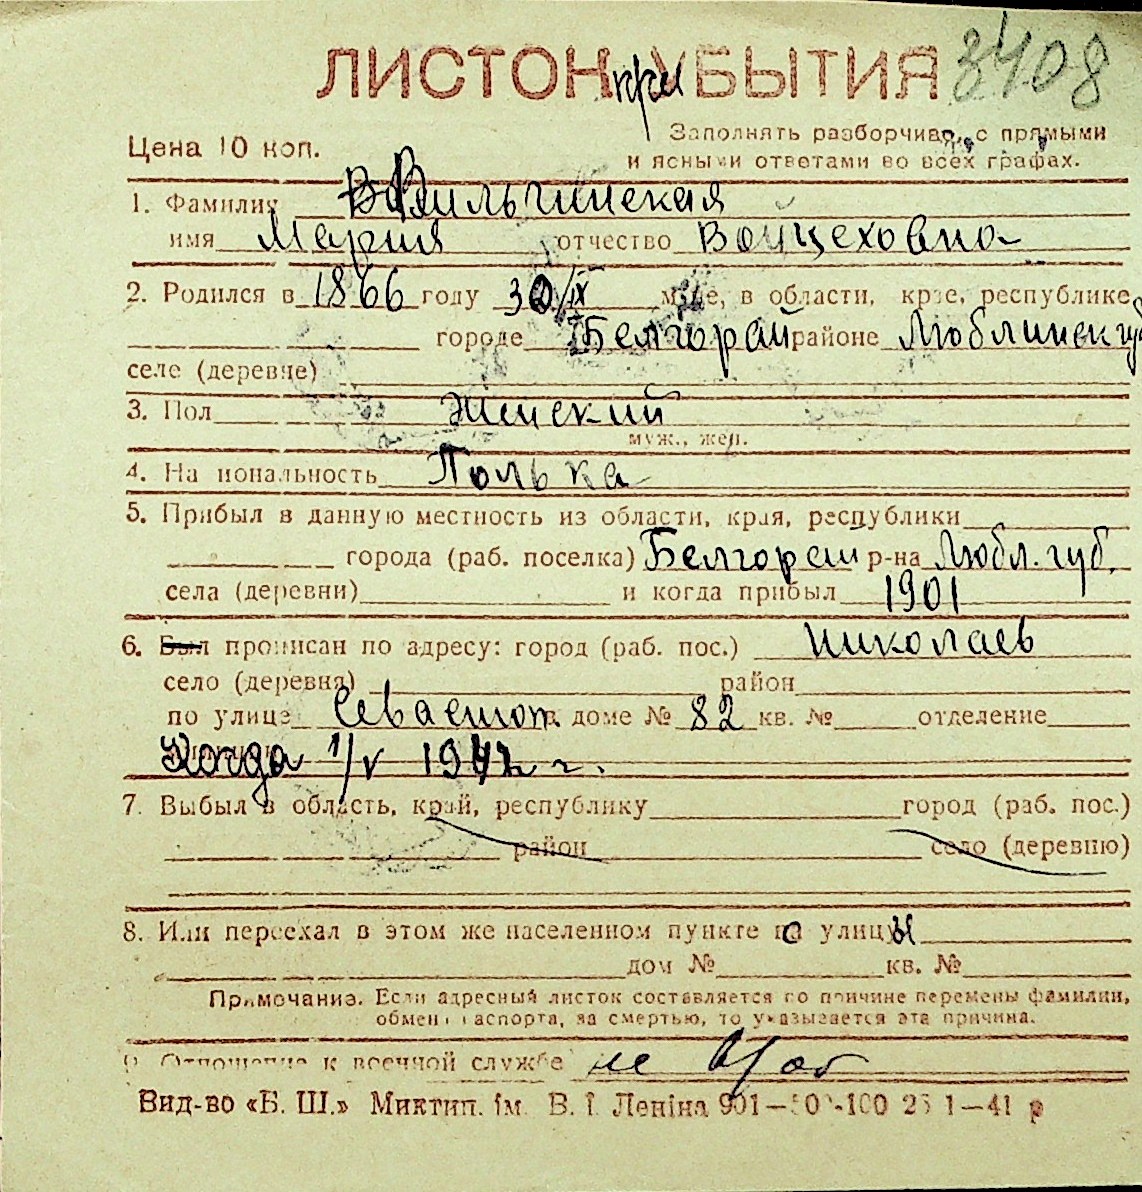 ЛИСТОК при УБЫТИЯ 3408
Цена 10 коп.
Заполнять разборчиво, с прямыми
и ясными ответами во всех графах.
1. Фамилия Вильчинская
имя Мария отчество Войцеховна
2. Родился в 1866 году 30/IX м-це, в области, крае, республике
городе Белгорай районе Люблинск губ
селе (деревне)
3. Пол Женский
муж., жен.
4. Национальность Полька
5. Прибыл в данную местность из области, края, республики
города (раб. поселка) Белгорай р-на Любл. губ.
села (деревни) и когда прибыл 1901
6. Был прописан по адресу: город (раб. пос.) Николаев
село (деревня) район
по улице Севастоп. в доме № 82 кв. № отделение
Когда 1/V 1942 г.
7. Выбыл в область, край, республику город (раб. пос.)
район село (деревню)
8. Или переехал в этом же населенном пункте с улицы
дом № кв. №
Примечание. Если адресный листок составляется по причине перемены фамилии,
обмена паспорта, за смертью, то указывается эта причина.
9. Отношение к военной службе не
Вид-во «Б. Ш.» Миктип. ім. В. І. Леніна 901—500-100 25 1—41 р